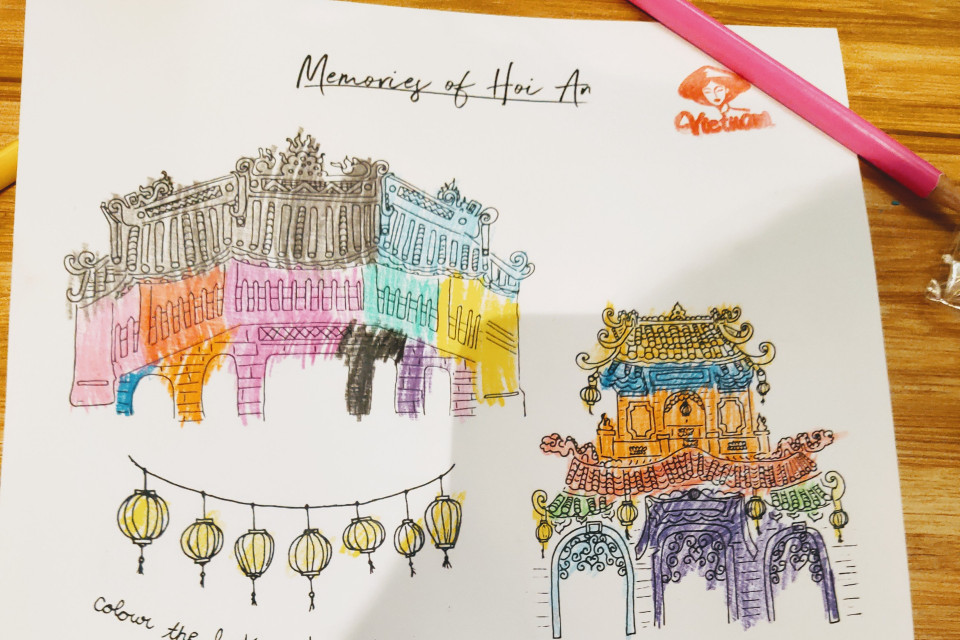 Memories of Hoi An
Vietnam
colour the